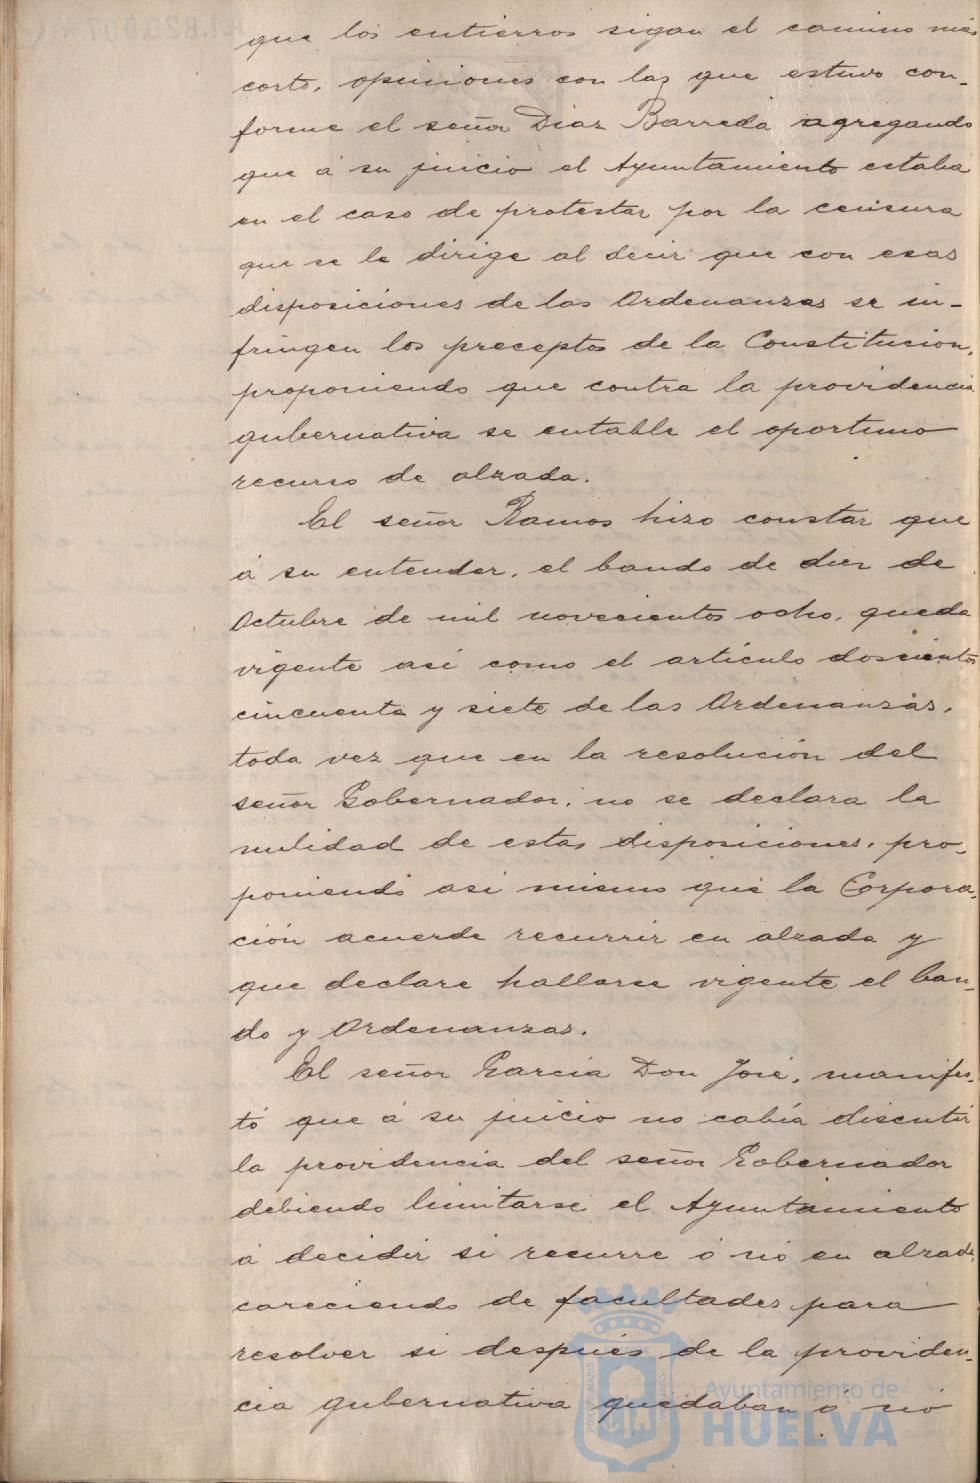 que los entierros sigan el camino más
corto, opiniones con las que estuvo con-
forme el señor Diaz Barreda agregando
que á su juicio el Ayuntamiento estaba
en el caso de protestar por la censura
que se le dirige al decir que con esas
disposiciones de las Ordenanzas se in-
fringen los preceptos de la Constitucion,
proponiendo que contra la providencia
gubernativa se entable el oportuno
recurso de alzada.
El señor Ramos hizo constar que
á su entender, el bando de diez de
Octubre de mil novecientos ocho, queda
vigente así como el artículo doscientos
cincuenta y siete de las Ordenanzas,
toda vez que en la resolución del
señor Gobernador, no se declara la
nulidad de estas disposiciones, pro-
poniendo así mismo que la Corpora-
ción acuerde recurrir en alzada y
que declare hallarse vigente el ban-
do y Ordenanzas.
El señor García Don José, manifes-
tó que á su juicio no cabía discutir
la providencia del señor Gobernador
debiendo limitarse el Ayuntamiento
á decidir si recurre ó nó en alzada,
careciendo de facultades para
resolver si después de la providen-
cia gubernativa quedaban ó nó
Ayuntamiento de
HUELVA